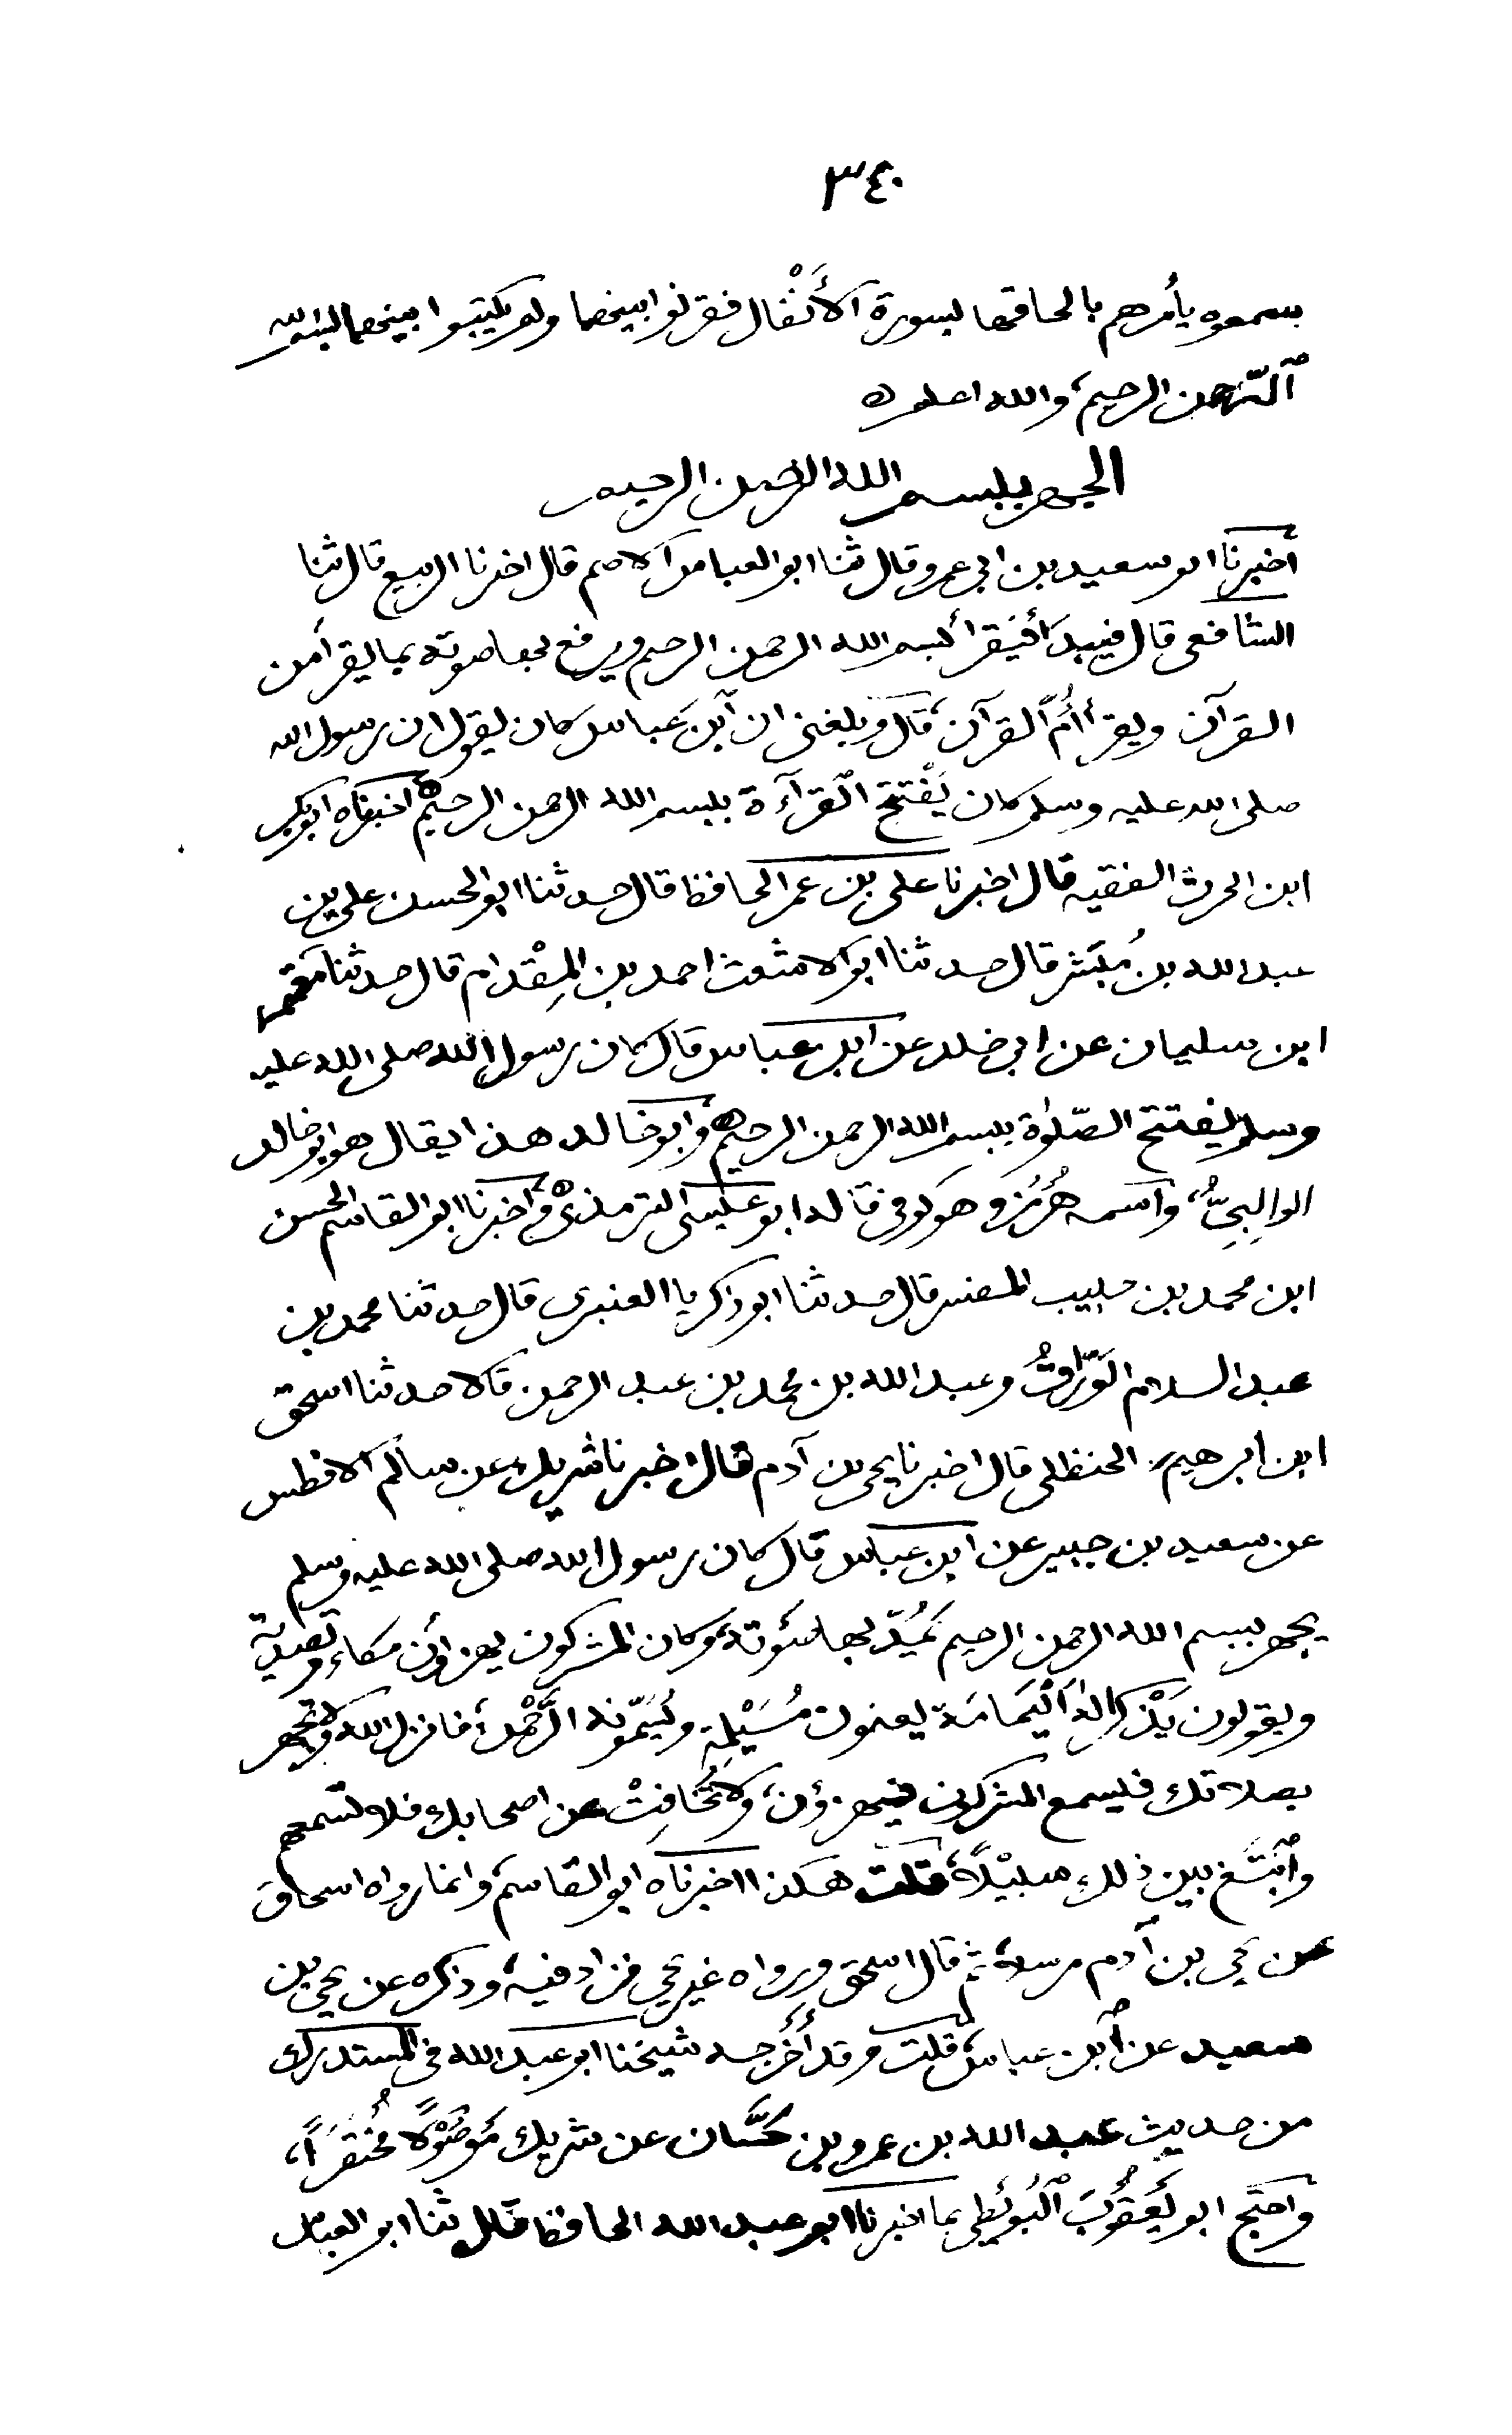 ٣٤٠
يسمعوه يأمرهم بالحاقها بسورة الأَنْفَال فقرنوا بينهما ولم يكتبوا بينهما بسم الله
الرّحمن الرحيم، والله اعلم ه
الجهر ببسم الله الرحمن الرحيم
أخبرنا ابو سعيد بن ابي عمرو قال ثنا ابو العباس الاصم قال اخبرنا الربيع قال ثنا
الشافعى قال فيبدَأُ فيَقرأ بسم الله الرحمن الرحيم ويرفع بها صوته بما يقرأ من
القرآن ويقرأ أُمّ القرآن، قال وبلغنى ان ابن عباس كان يقول ان رسول الله
صلى الله عليه وسلم كان يَفْتتح القرآءة ببسم الله الرحمن الرحيم ه اخبرناه ابو بكر
ابن الحرث الفقيه قال اخبرنا على بن عمر الحافظ قال حدثنا ابو الحسن على بن
عبد الله بن مُبَشّر قال حدثنا ابو الاشعث احمد بن المِقْدام قال حدثنا معتمر
ابن سليمان عن ابى خلد عن ابن عباس قال كان رسول الله صلى الله عليه
وسلم يفتتح الصّلوٰة ببسم الله الرحمن الرحيم ه وابو خالد هذا يقال هو ابو خالد
الوالِبِىُّ، واسمه هُرْمُز وهو كوفى قاله ابو عيسى الترمذى ه واخبرنا ابو القاسم الحسن
ابن محمد بن حبيب المفسر قال حدثنا ابو زكريا العنبرى قال حدثنا محمد بن
عبد السلام الوَرّاقُ وعبد الله بن محمد بن عبد الرحمن قالا حدثنا اسحق
ابن ابرهيم الحنظلى قال اخبرنا يحيى بن آدم قال اخبرنا شريك عن سالم الافطس
عن سعيد بن جبير عن ابن عباس قال كان رسول الله صلى الله عليه وسلم
يجهر ببسم الله الرحمن الرحيم يَمُدّ بها صَوته، وكان المشركون يهزؤن مكاء وتصدية
ويقولون يَذْكر اله اليَمَامَة يعنون مُسَيْلِمة ويُسَمّونه الرَّحْمٰن، فانزل الله ولا تجهر
بصلاتك فيسمع المشركون فيهزؤن، ولا تُخَافِتْ عن اصحابك فلا تسمعهم
وابْتَغ بين ذلك سبيْلاً، قلت هكذا اخبرناه ابو القاسم، وانما رواه اسحاق
عن يحيى بن آدم مرسلا ثم قال اسحق ورواه غير يحيى فزاد فيه، وذكره عن يحيى بن
سعيد عن ابن عباس، قلت وقد أَخرجه شيخنا ابو عبد الله فى المستدرك
من حديث عبد الله بن عمرو بن حَسَّان عن شريك مَوصُوْلًا مُختصَرًا،
واحتج ابو يَعقُوْبَ الْبُوَيْطى بما اخبرنا ابو عبد الله الحافظ قال ثنا ابو العباس